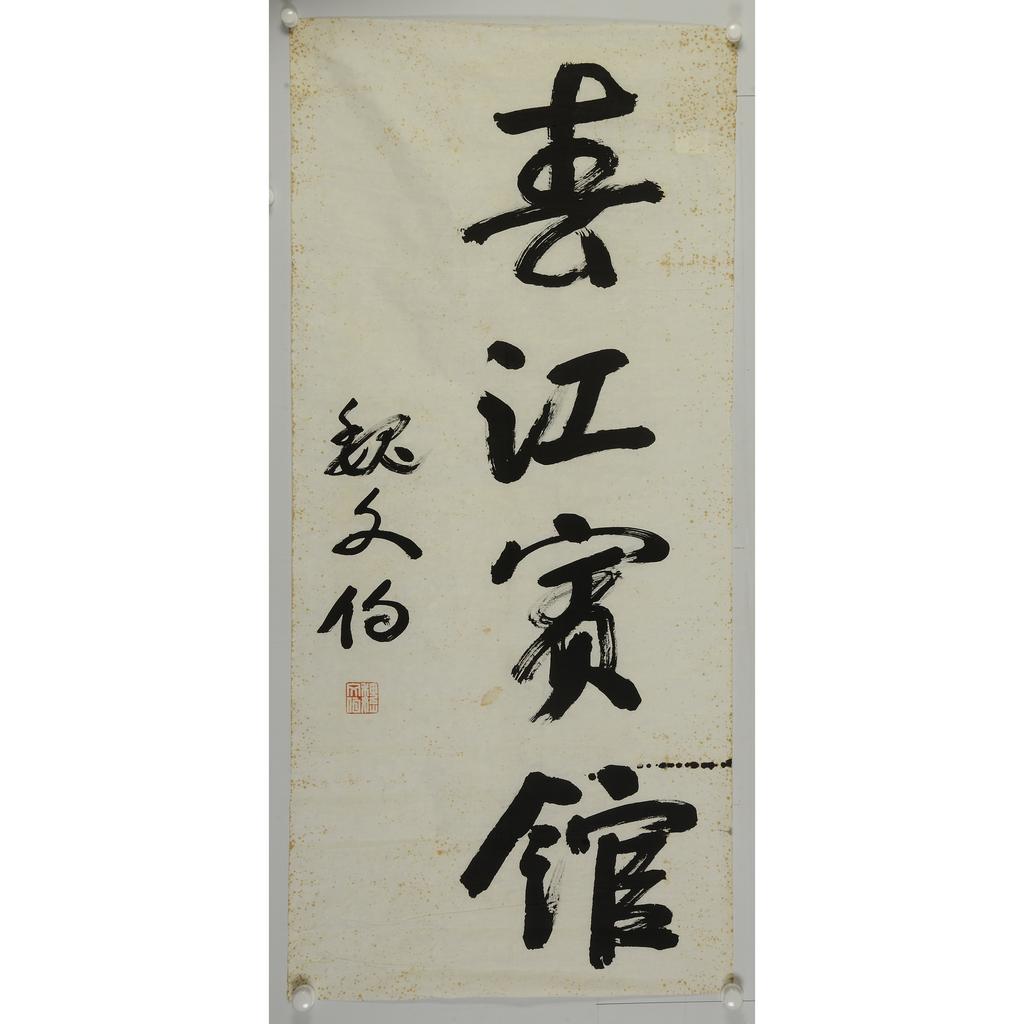 春江賓館
魏文伯